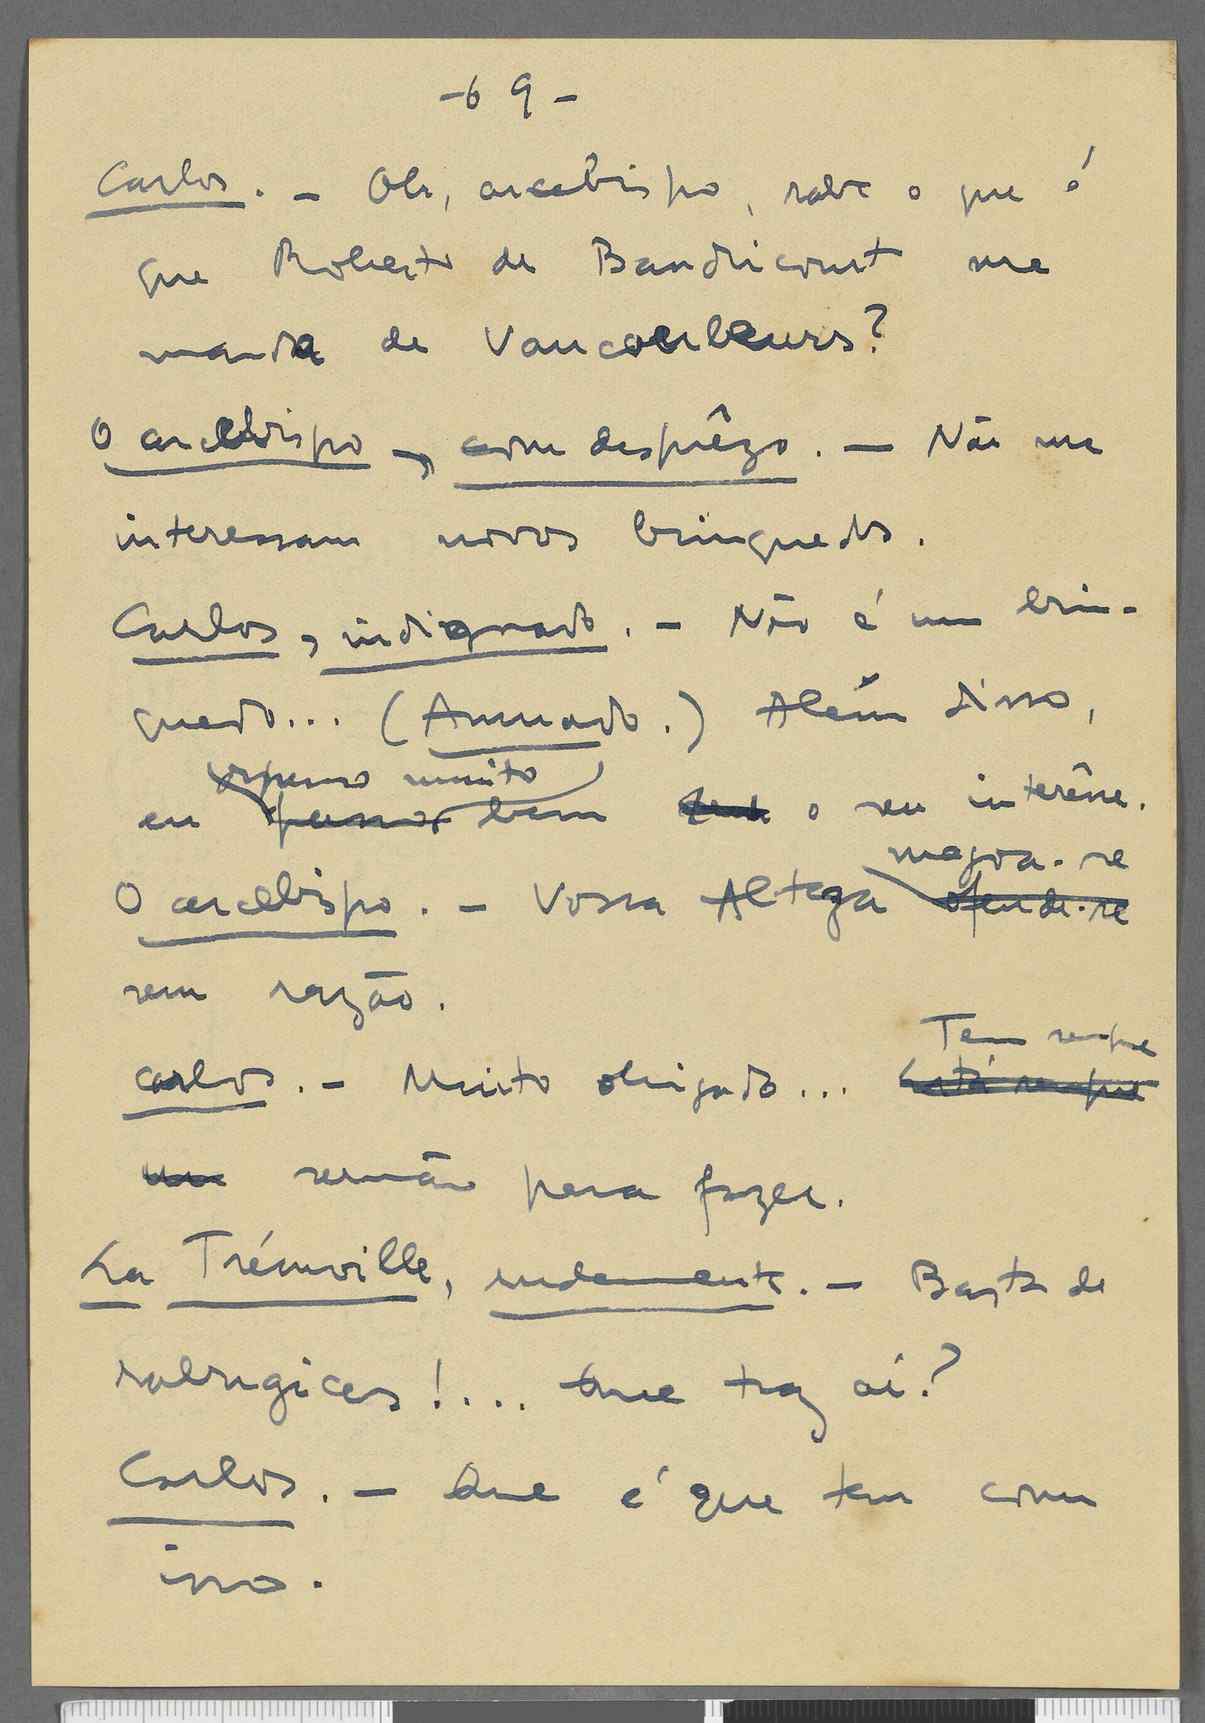 -69-
Carlos. - Oh, arcebispo, sabe o que é
que Roberto de Baudricourt me
manda de Vaucouleurs?
O arcebispo -, com desprêzo. - Não me
interessam novos brinquedos.
Carlos, indignado. - Não é um brin-
quedo... (Amuado.) Além disso,
dispenso muito
eu bem o seu interêsse.
magoa-se
O arcebispo. - Vossa Alteza ofende-se
sem razão.
Tem sempre
Carlos. - Muito obrigado... Está sempre
um sermão para fazer.
La Trémoille, rudemente. - Basta de
rabugices!... Que traz aí?
Carlos. - Que é que tem com
isso.